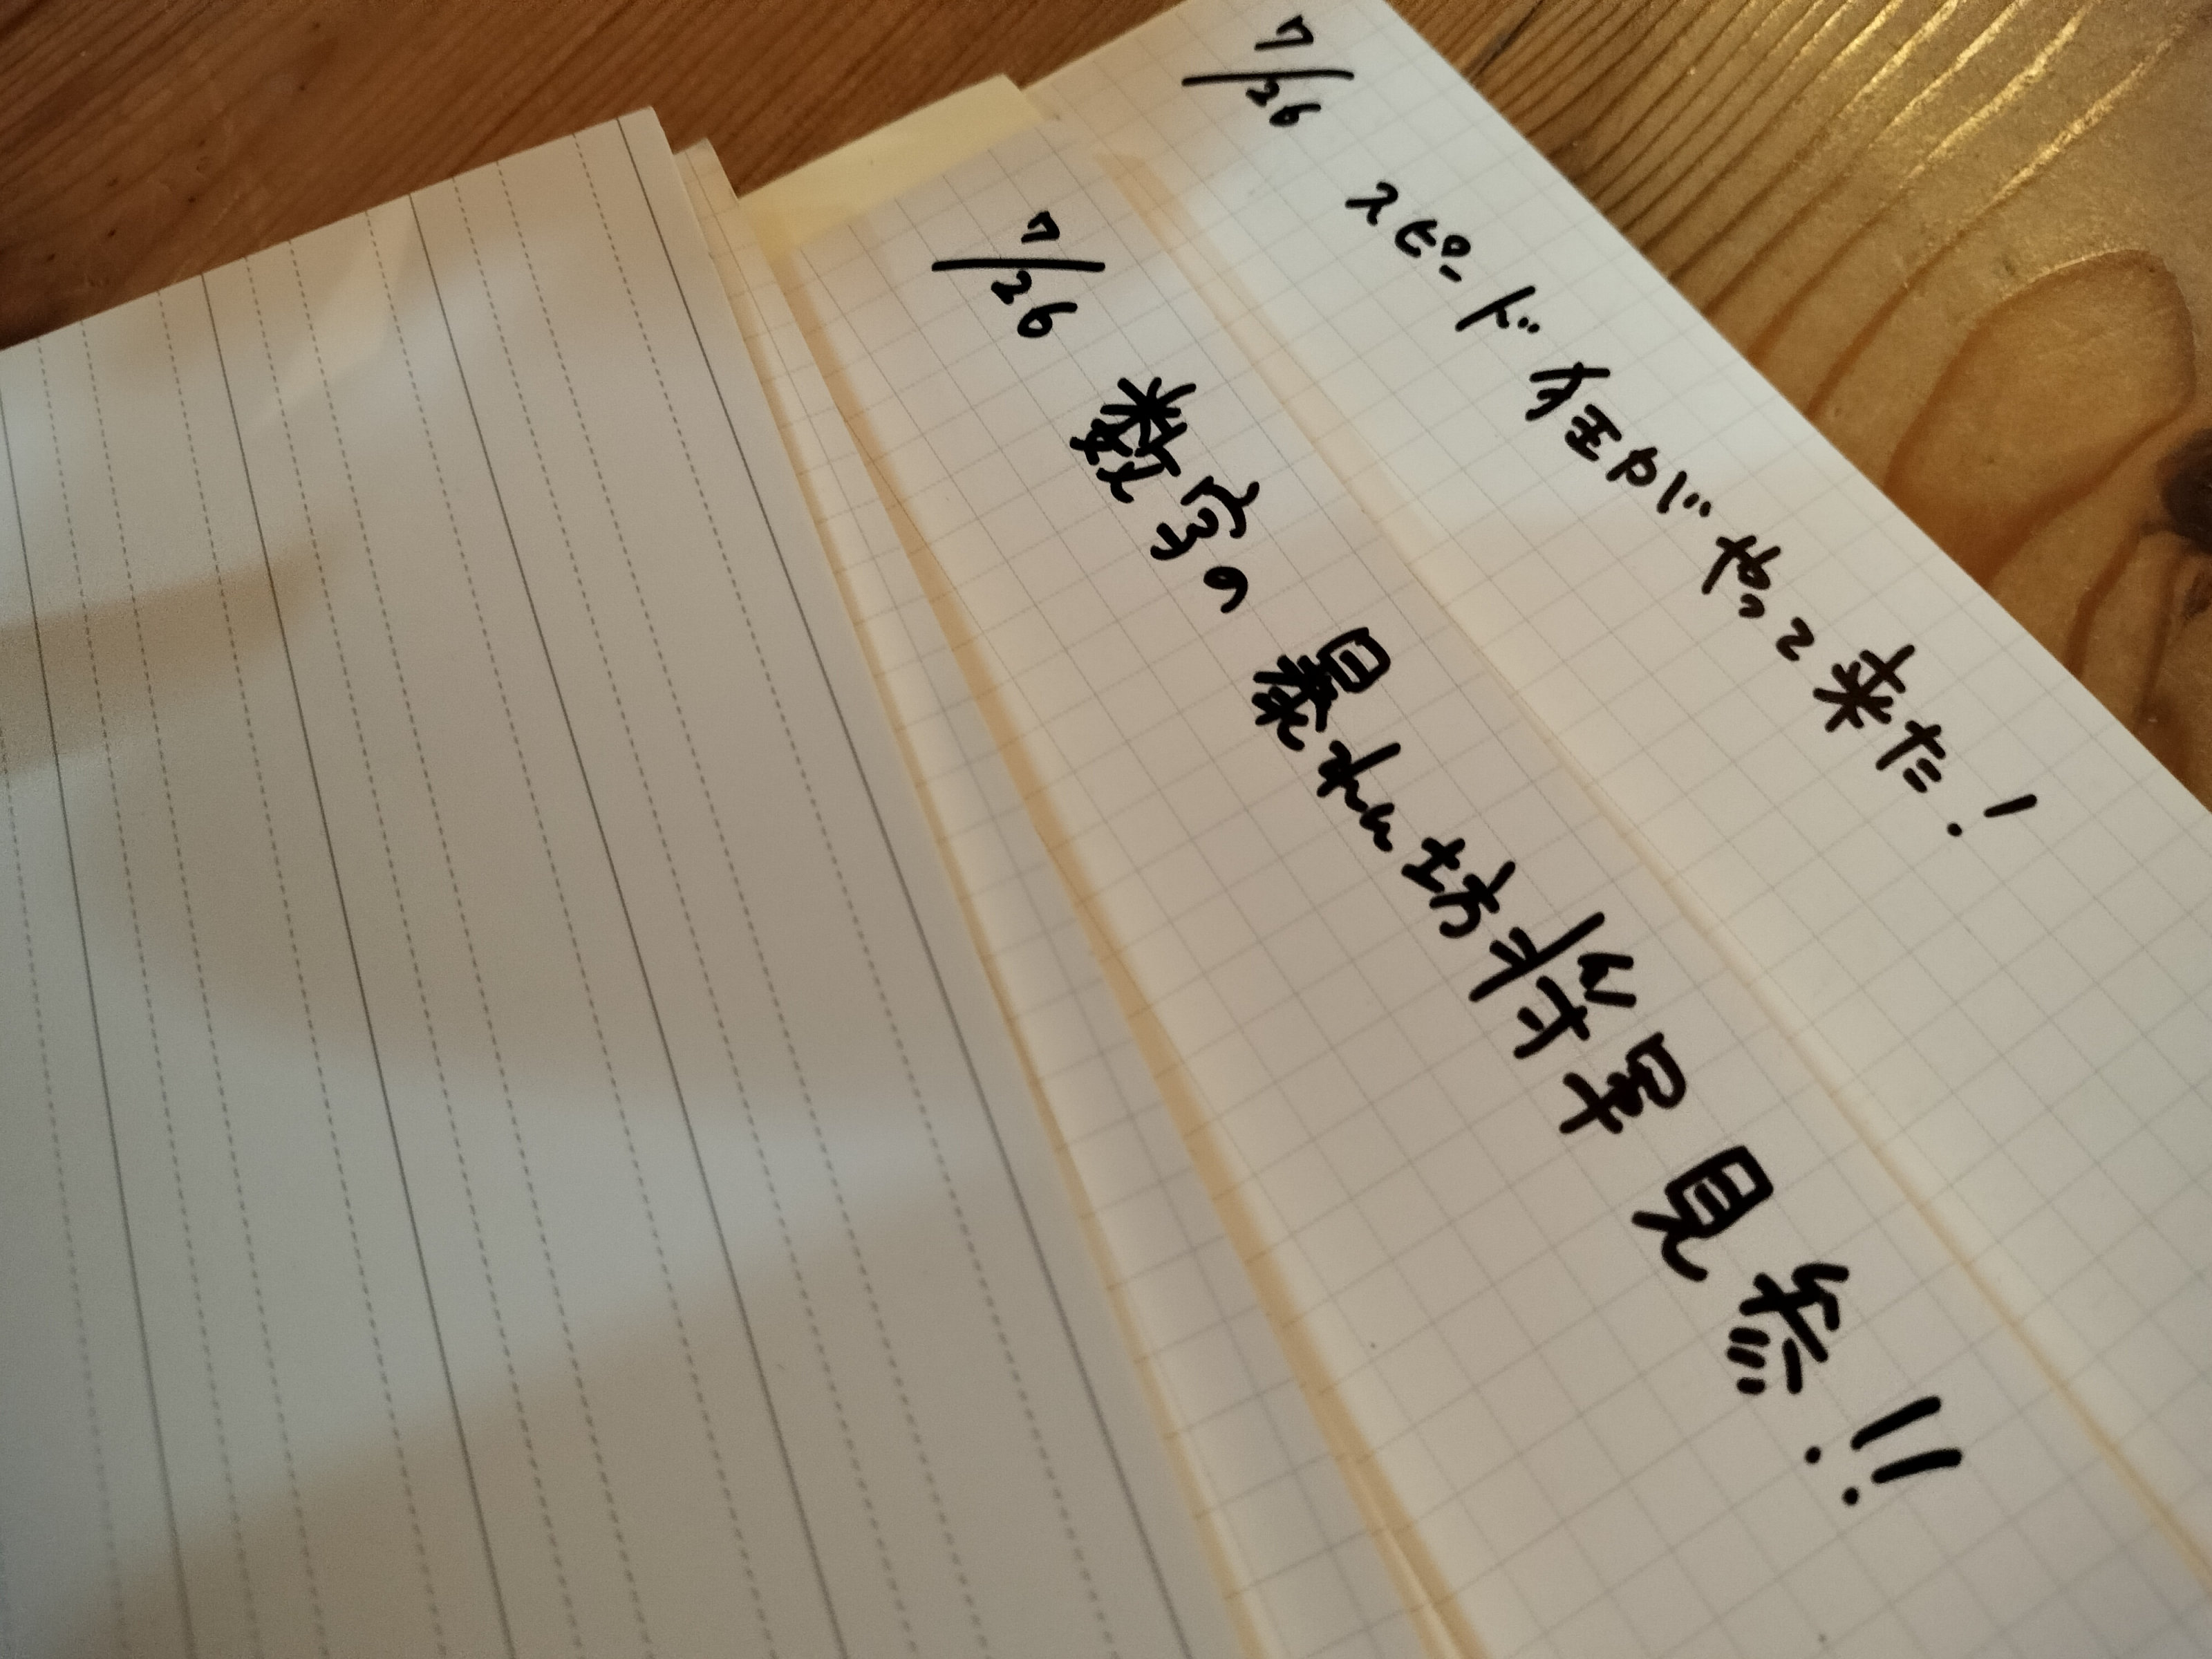 7/26 スピード狂がやって来た!
7/26 数字の暴れん坊将軍見参!!